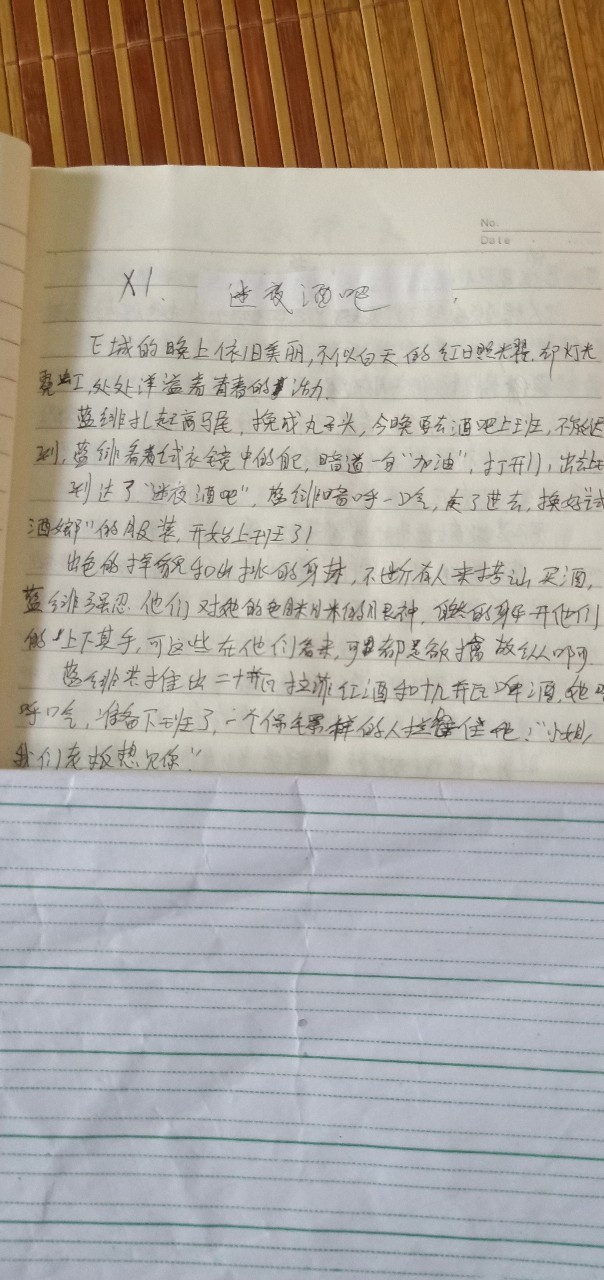 No.
Date
X1. 迷夜酒吧
E城的晚上依旧美丽,不似白天的红日照耀,却灯光
霓虹,处处洋溢着青春的活力.
蓝绯扎起高马尾,挽成丸子头,今晚要去酒吧上班,不能迟
到,蓝绯看着试衣镜中的自己,暗道一句"加油",打开门,出去
到达了"迷夜酒吧",蓝绯暗呼一口气,走了进去,换好"试
酒女郎"的服装,开始上班了!
出色的样貌和出挑的身材,不断有人来搭讪买酒,
蓝绯强忍他们对她的色眯眯的眼神,他们
的上下其手,可这些在他们看来,可都是欲擒故纵啊
蓝绯共推出二十瓶拉菲红酒和十九瓶啤酒,她
呼口气,准备下班了,一个保镖样的人拦住她!"小姐,
我们老板想见你"